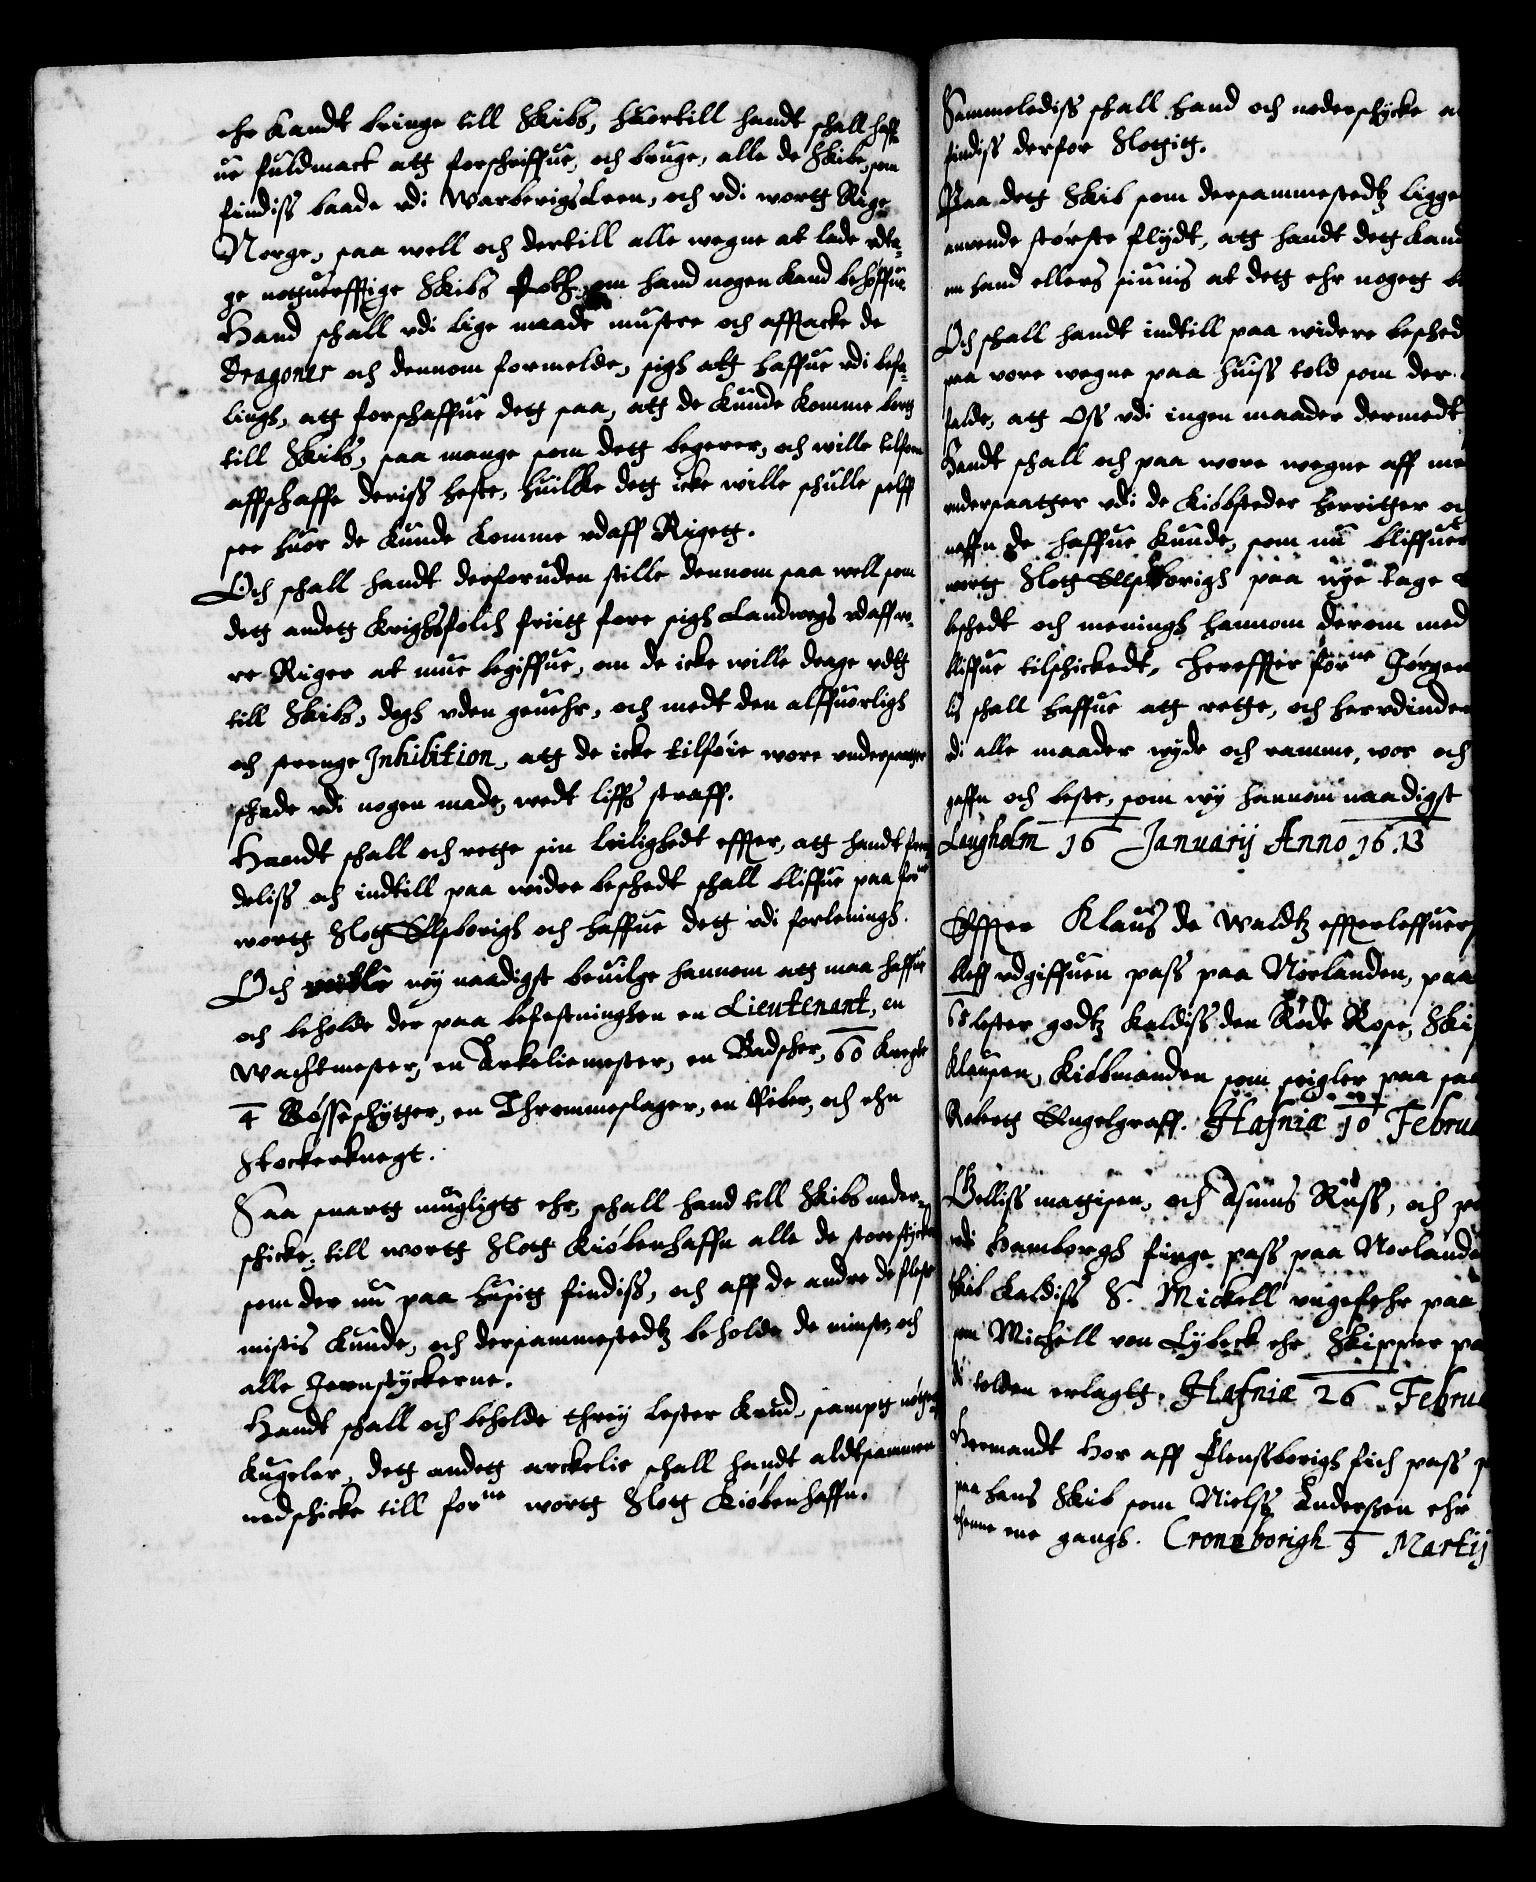 ehr kandt bringe till Skibs, huortill handt schall haff
ue fuldmact att forschriffue, och bruge, alle de Skibe, som
findiss baade vdi Warberigs Leen, och vdi wortt Rige
Norge, saa well och dertill alle wegne at lade vdta-
ge nøttuerfftige Skibs folk, om hand nogen kand behöffue.
Hand schall vdi lige maade mustre och afftacke de
Dragoner och dennom formelde, sigh att haffue vdi befa-
lingh, att forschaffue dett saa, att de kunde komme bortt
till Skibs, saa mange som dett begerer, och wille tilforn
affschaffe deriss heste, huilcke dett icke wille schulle selff
see huor de kunde komme vdaff Rigett.
Och schall handt derforuden stille dennom saa well som
dett andett Krighsfolch friitt fore sigh Landwegs vdaff wo-
re Riger at mue begiffue, om de icke wille drage vdtt
till Skibs, dogh vden geuehr, och medt den alffuorligh
och strenge Inhibition, att de icke tilföie wore vndersaatter
schade vdi nogen made, wedt liffs straff.
Handt schall och rette sin leilighedt effter, att handt frem
deliss och indtill paa widre beschedt schall bliffue paa forne
wortt Slott Elsborigh och haffue dett vdi forleningh.
Och wille wij naadigst beuilge hannom att maa haffue
och beholde der paa befestninghen en Lieutenant, en
Wachtmester, en Arkeliemester, en Badscher, 60 Knegte
4 Bösseschytter, en Thrommeslager, en Piber, och ehn
Stockerknegt.
Saa snartt mugligtt ehr, schall hand till Skibs neder-
schicke, till wortt Slott Kiöbenhaffn alle de store stycker
som der nu paa husitt findiss, och aff de andre de fleste
mistis kunde, och dersammestedtz beholde de minste, och
alle Jernstyckerne.
Handt schall och beholde threij lester Krud, sampt nötter
Kugeler, dett andett arckelie schall handt aldtsammen
nedschicke till forne wortt Slott Kiöbenhaffn.
Sammelediss schall hand och nederschycke a
findiss derfor Slottitt.
Paa dett Skib som dersammestedtz ligge
anwende störste flijdt, att handt dett kand
en hand ellers siunis at dett ehr nogett
Och schall handt indtill paa widere besched
paa vore wegne paa huiss told som der
falde, att Oss vdi ingen maader dermedt
Handt schall och paa wore wegne aff me
vndersaatter vdi de Kiöbsteder herritter och
naffn de haffue kunde, som nu bliffuer
wortt Slott Elsborigh paa nye tage
beschedt och meningh hannom derom med
bliffue tilschickedt, hereffter forne Jörgen
schall haffue att rette, och herudinden
di alle maader wijde och ramme, vor och
gaffn och beste, som wij hannom naadigst
Laugholm 16 Januarij Anno 1613
Effter Klaus de Waldtz effterleffuers
bleff vdgiffuen pass paa Norlanden, paa
68 lester godtz kaldiss den Röde Rose, Ski
Klausen, Kiöbmanden som seigler paa saa
Robertt Engelgraff. Hafniæ 10 Februa
Gelliss mattisen, och Asmus Russ, och
vdi Hamborgh finge pass paa Norlande
Skib kaldiss S. Mickell vngefehr paa
som Michell von Lybeck ehr Skipper pa
di tolden erlagtt. Hafniæ 26 Februa
Hermandt Hor aff Flenssborigh fich pass
paa hans Skib som Nielss Anderssen ehr
thenne ene gangh. Cronneborigh 9 Martij